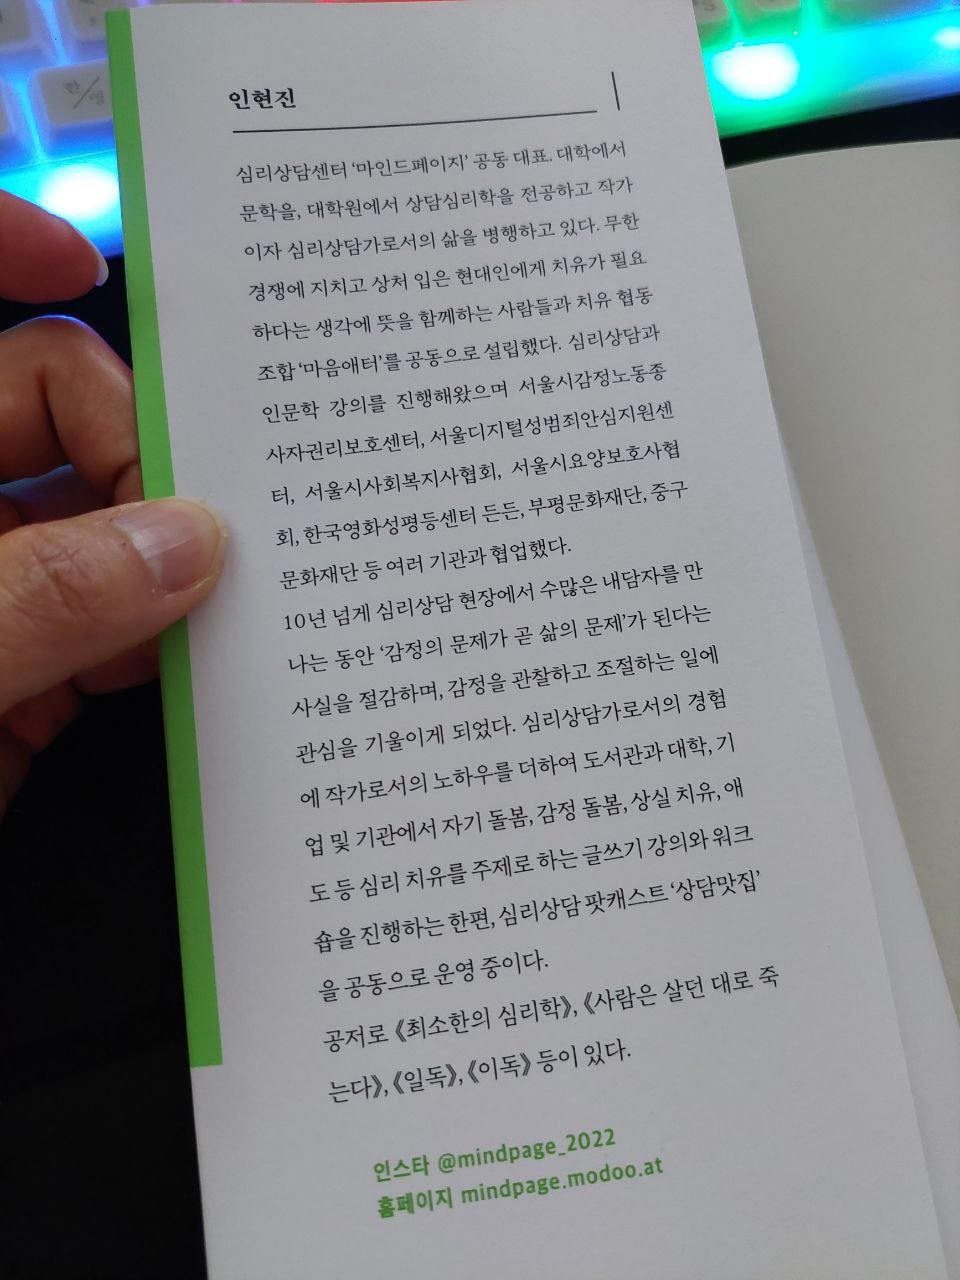 인현진
심리상담센터 ‘마인드페이지’ 공동 대표. 대학에서
문학을, 대학원에서 상담심리학을 전공하고 작가
이자 심리상담가로서의 삶을 병행하고 있다. 무한
경쟁에 지치고 상처 입은 현대인에게 치유가 필요
하다는 생각에 뜻을 함께하는 사람들과 치유 협동
조합 ‘마음애터’를 공동으로 설립했다. 심리상담과
인문학 강의를 진행해왔으며 서울시감정노동종
사자권리보호센터, 서울디지털성범죄안심지원센
터, 서울시사회복지사협회, 서울시요양보호사협
회, 한국영화성평등센터 든든, 부평문화재단, 중구
문화재단 등 여러 기관과 협업했다.
10년 넘게 심리상담 현장에서 수많은 내담자를 만
나는 동안 ‘감정의 문제가 곧 삶의 문제’가 된다는
사실을 절감하며, 감정을 관찰하고 조절하는 일에
관심을 기울이게 되었다. 심리상담가로서의 경험
에 작가로서의 노하우를 더하여 도서관과 대학, 기
업 및 기관에서 자기 돌봄, 감정 돌봄, 상실 치유, 애
도 등 심리 치유를 주제로 하는 글쓰기 강의와 워크
숍을 진행하는 한편, 심리상담 팟캐스트 ‘상담맛집’
을 공동으로 운영 중이다.
공저로 《최소한의 심리학》, 《사람은 살던 대로 죽
는다》, 《일독》, 《이독》 등이 있다.
인스타 @mindpage_2022
홈페이지 mindpage.modoo.at
한/영